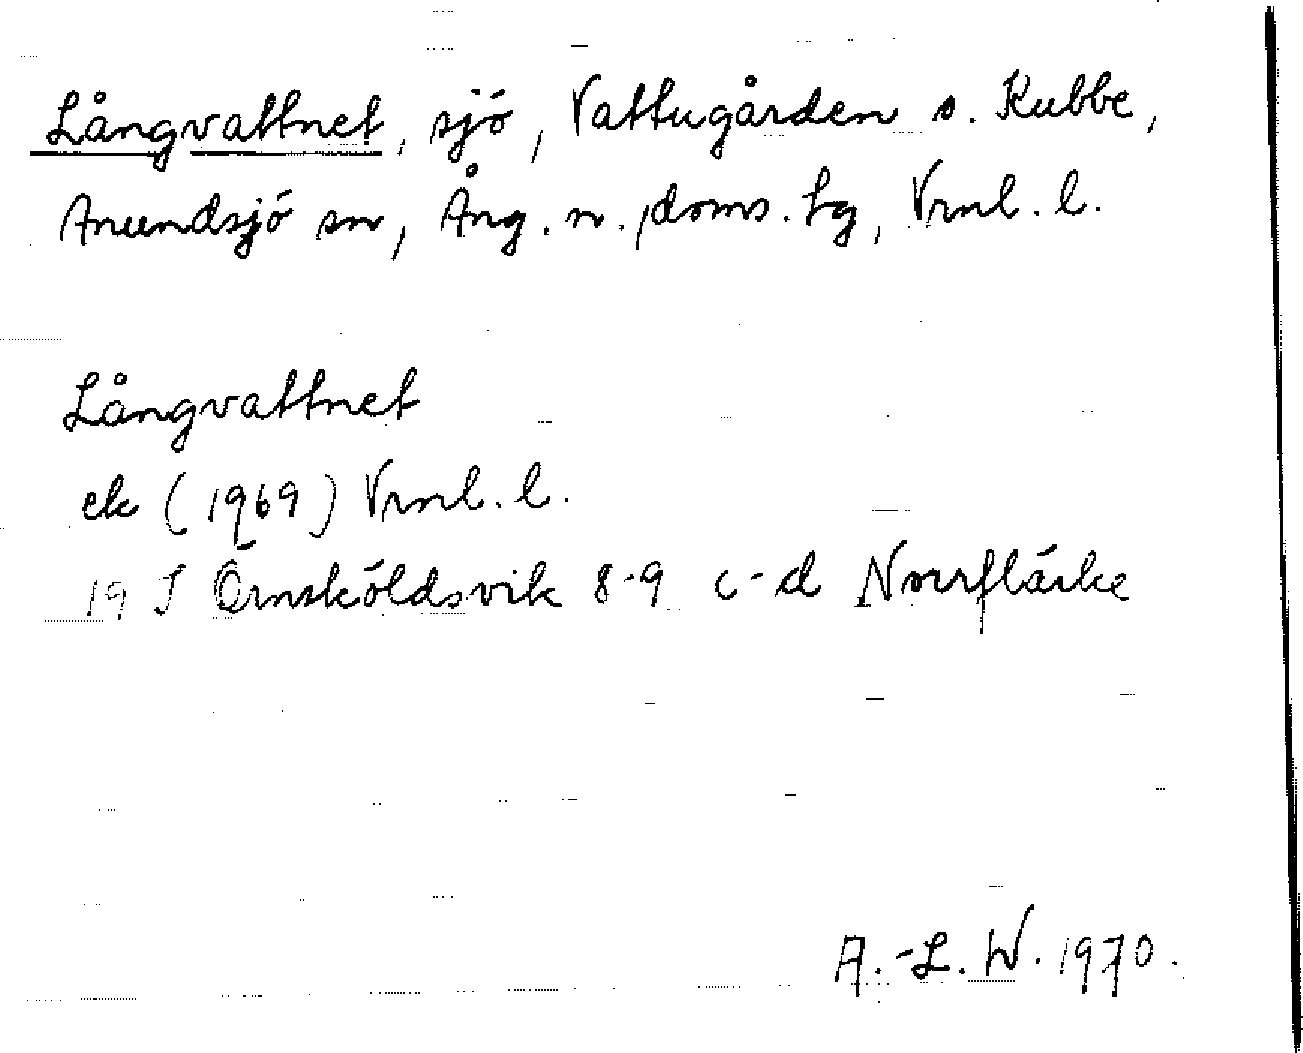 Långvattnet, sjö, Vattugården s. Kubbe,
Anundsjö sn, Ång. n. doms. tg, Vrnl. l.
Långvattnet
ek (1969) Vrnl. l.
19 J Örnsköldsvik 8-9 c-d Norrflärke
A.-L. W. 1970.